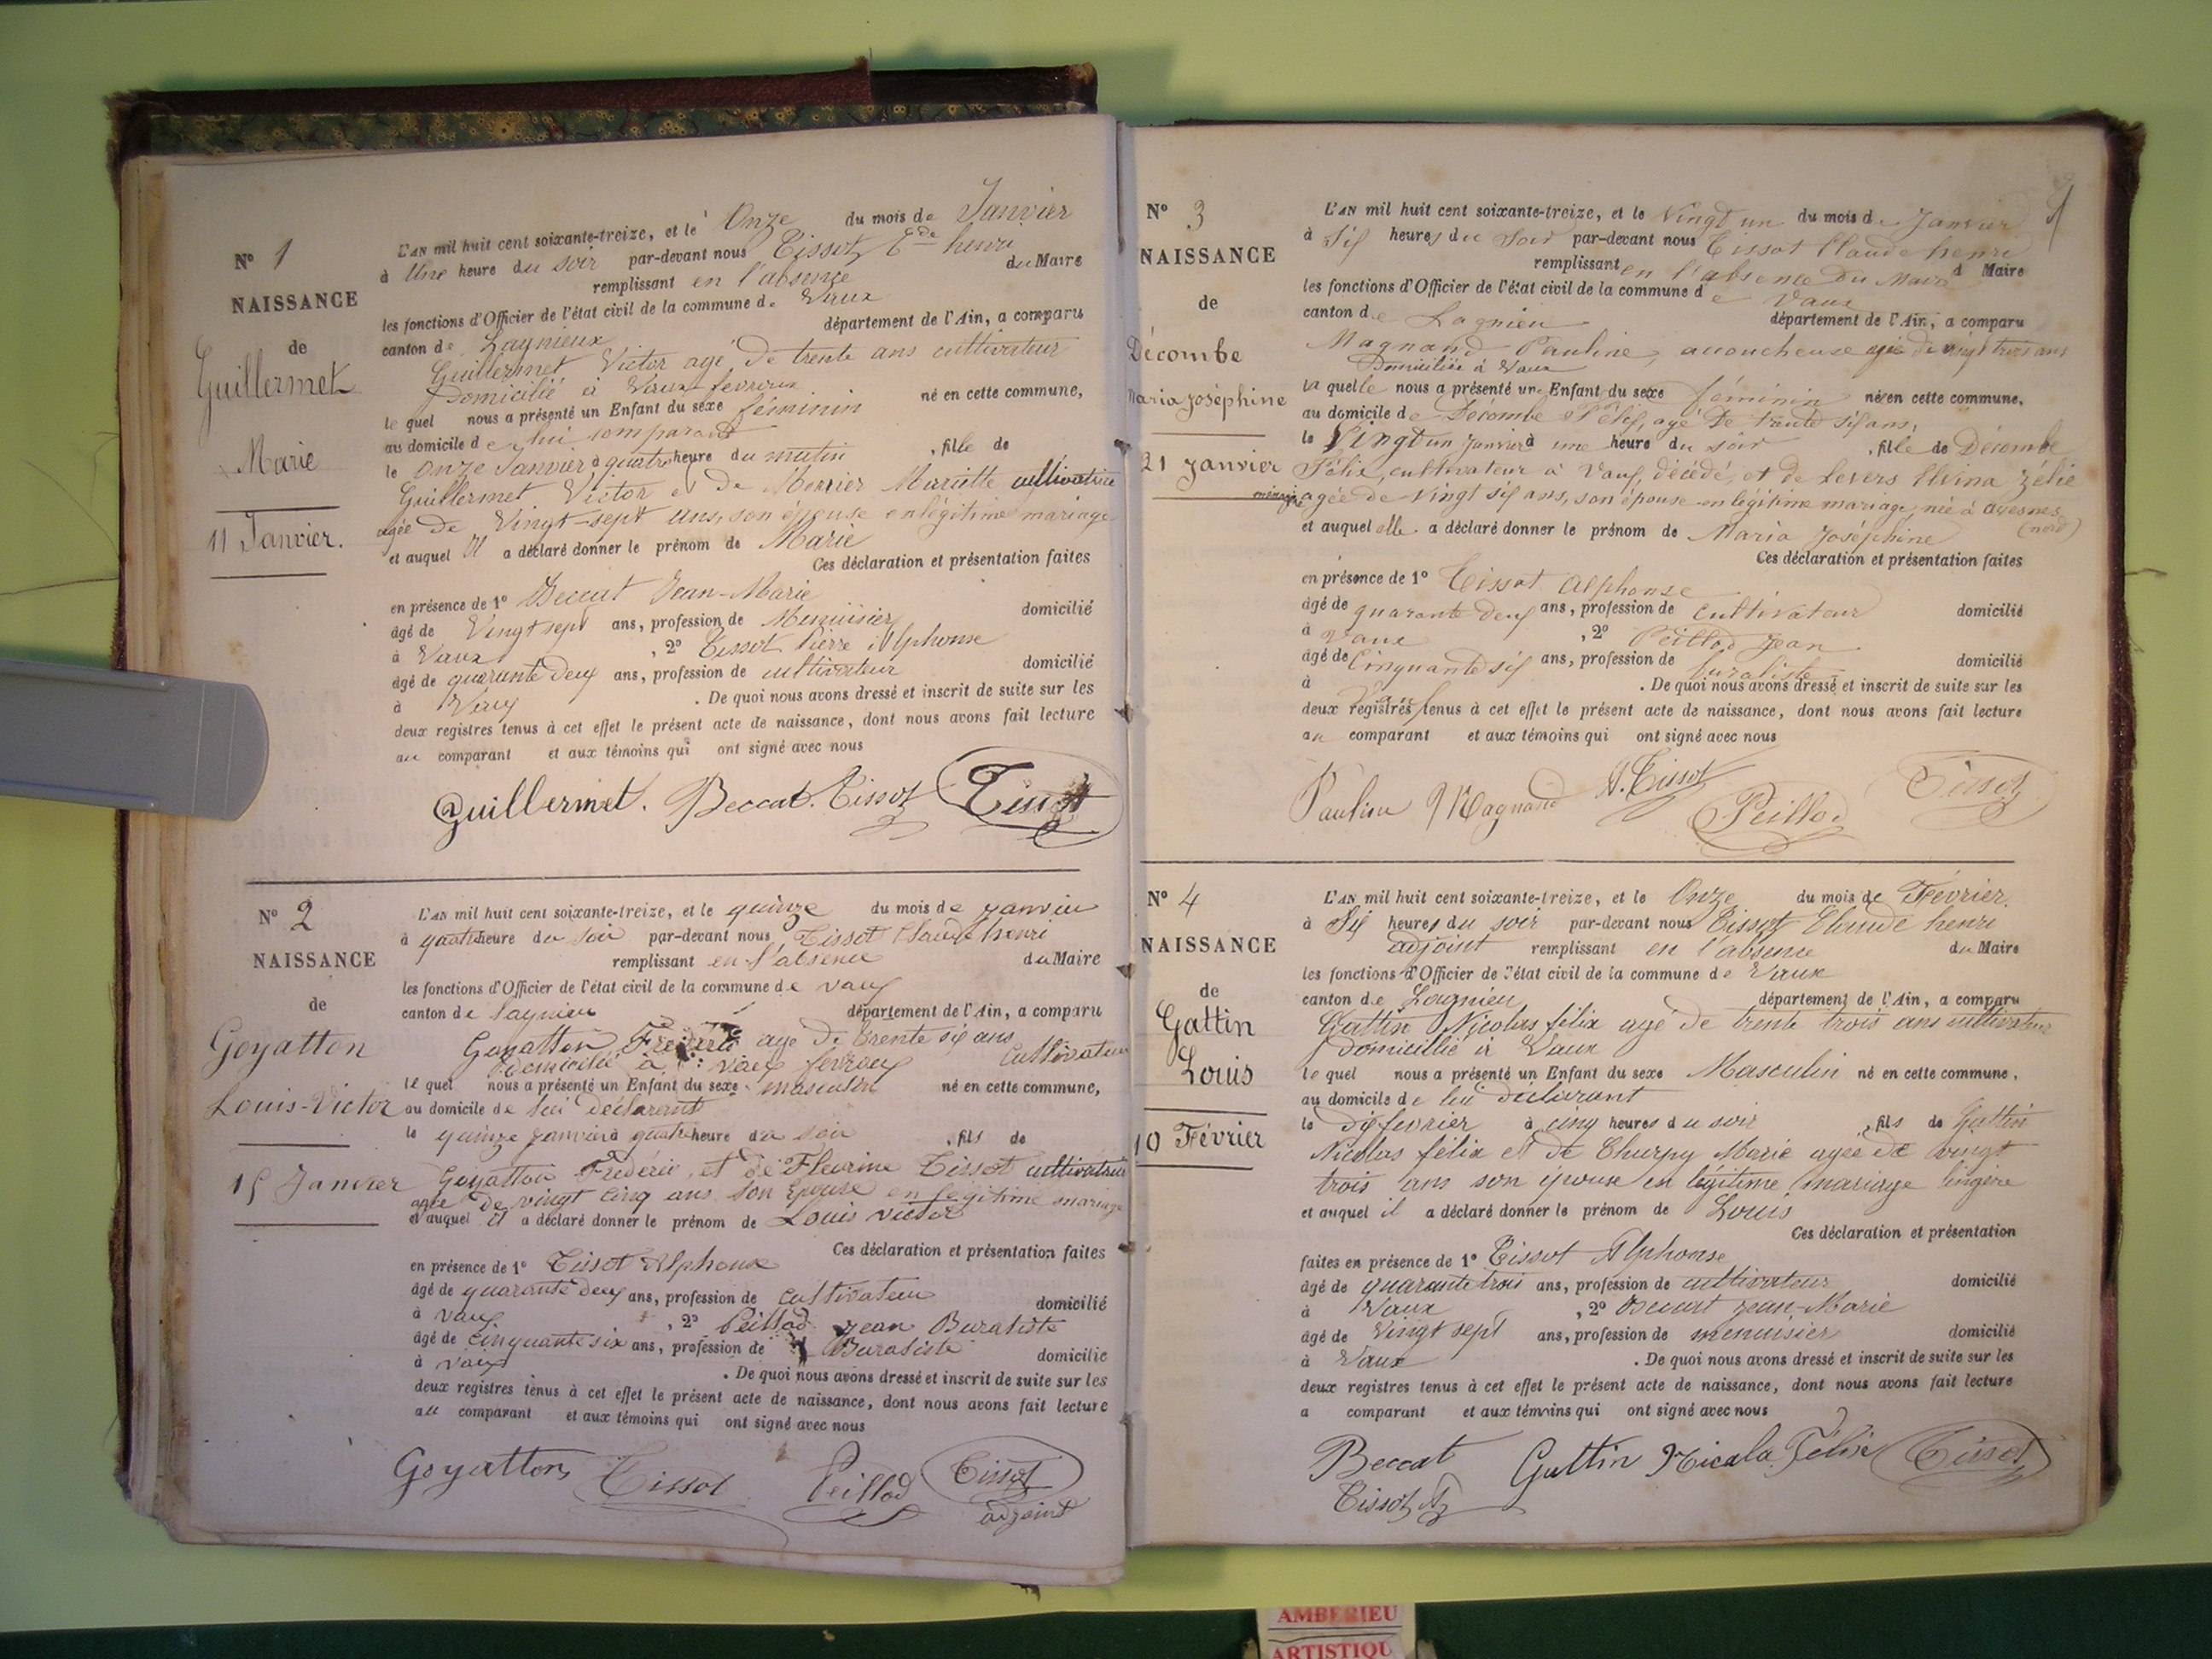 N° 1
NAISSANCE
de
Guillermet
Marie
11 Janvier.
L'AN mil huit cent soixante-treize, et le Onze du mois de Janvier
à Une heure du soir par-devant nous Tissot Cde henri
remplissant en l'absence du Maire
les fonctions d'Officier de l'état civil de la commune de Vaux
canton de Lagnieux département de l'Ain, a comparu
Guillermet Victor agé de trente ans cultivateur
Domicilié à Vaux fevroux
le quel nous a présenté un Enfant du sexe féminin né en cette commune,
au domicile de lui comparant
le onze Janvier à quatre heure du matin , fille de
Guillermet Victor et de Mercier Mariette cultivatrice
agée de Vingt-sept ans, son épouse en légitime mariage
et auquel Il a déclaré donner le prénom de Marie
Ces déclaration et présentation faites
en présence de 1° Beccat Jean-Marie
âgé de Vingt sept ans, profession de Menuisier domicilié
à Vaux , 2° Tissot Pierre Alphonse
âgé de quarante deux ans, profession de cultivateur domicilié
à Vaux . De quoi nous avons dressé et inscrit de suite sur les
deux registres tenus à cet effet le présent acte de naissance, dont nous avons fait lecture
au comparant et aux témoins qui ont signé avec nous
Guillermet. Beccat. Tissot Tissot
N° 2
NAISSANCE
de
Goyatton
Louis-Victor
15 Janvier
L'AN mil huit cent soixante-treize, et le quinze du mois de janvier
à quatre heure du soir par-devant nous Tissot Claude henri
remplissant en l'absence du Maire
les fonctions d'Officier de l'état civil de la commune de vaux
canton de lagnieu département de l'Ain, a comparu
Goyatton Frédéric age de trente six ans
domicilié à vaux fevroux cultivateur
le quel nous a présenté un Enfant du sexe masculin né en cette commune,
au domicile de lui déclarant
le quinze janvier à quatre heure du soir , fils de
Goyatton Frédéric et de Fleurine Tissot cultivatrice
agée de vingt cinq ans son épouse en légitime mariage
et auquel il a déclaré donner le prénom de Louis victor
Ces déclaration et présentation faites
en présence de 1° Tissot Alphonse
âgé de quarante deux ans, profession de cultivateur domicilié
à vaux , 2° Peillod jean Buraliste
âgé de cinquante six ans, profession de Buraliste domicilié
à vaux . De quoi nous avons dressé et inscrit de suite sur les
deux registres tenus à cet effet le présent acte de naissance, dont nous avons fait lecture
au comparant et aux témoins qui ont signé avec nous
Goyatton Tissot Peillod Tissot
adjoint
N° 3
NAISSANCE
de
Décombe
Maria Joséphine
21 Janvier
L'AN mil huit cent soixante-treize, et le Vingt un du mois de Janvier
à Six heures du Soir par-devant nous Tissot Claude henri
remplissant en l'absence du Maire d Maire
les fonctions d'Officier de l'état civil de la commune de Vaux
canton de Lagnieu département de l'Ain, a comparu
Magnand Pauline, accoucheuse agée de vingt trois ans
Domiciliée à Vaux
la quelle nous a présenté un Enfant du sexe féminin née en cette commune,
au domicile de Décombe Félix, agé de trente six ans,
le Vingt un Janvier à une heure du soir , fille de Décombe
Félix, cultivateur à Vaux, décédé, et de Levers Elvina Zélie
agée de Vingt six ans, son épouse en légitime mariage, née à avesnes
(nord)
et auquel elle a déclaré donner le prénom de Maria Joséphine
Ces déclaration et présentation faites
en présence de 1° Tissot Alphonse
âgé de quarante deux ans, profession de cultivateur domicilié
à Vaux , 2° Peillod Jean
âgé de Cinquante six ans, profession de buraliste domicilié
à Vaux . De quoi nous avons dressé et inscrit de suite sur les
deux registres tenus à cet effet le présent acte de naissance, dont nous avons fait lecture
au comparant et aux témoins qui ont signé avec nous
Pauline Magnand A. Tissot Peillod Tissot
N° 4
NAISSANCE
de
Gattin
Louis
10 Février
L'AN mil huit cent soixante-treize, et le Onze du mois de Février.
à Six heures du soir par-devant nous Tissot Claude henri
adjoint remplissant en l'absence du Maire
les fonctions d'Officier de l'état civil de la commune de Vaux
canton de Lagnieu département de l'Ain, a comparu
Gattin Nicolas félix agé de trente trois ans cultivateur
domicillié à Vaux
le quel nous a présenté un Enfant du sexe Masculin né en cette commune,
au domicile de lui déclarant
le dix fevrier à cinq heures du soir , fils de Gattin
Nicolas félix et de Churpy Marie agée de vingt
trois ans son épouse en légitime mariage lingère
et auquel il a déclaré donner le prénom de Louis
Ces déclaration et présentation
faites en présence de 1° Tissot Alphonse
âgé de quarante trois ans, profession de cultivateur domicilié
à Vaux , 2° Beccat Jean-Marie
âgé de Vingt sept ans, profession de menuisier domicilié
à Vaux . De quoi nous avons dressé et inscrit de suite sur les
deux registres tenus à cet effet le présent acte de naissance, dont nous avons fait lecture
a comparant et aux témoins qui ont signé avec nous
Beccat Gattin Nicola Félix Tissot
Tissot A
AMBERIEU
ARTISTIQU